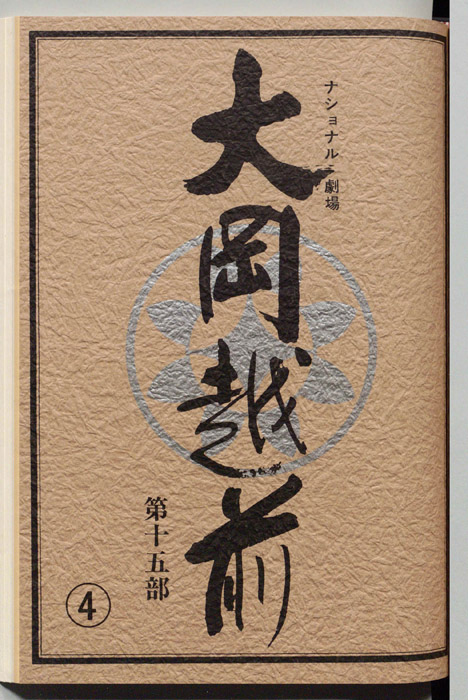 ナショナル劇場
大岡越前
第十五部
④